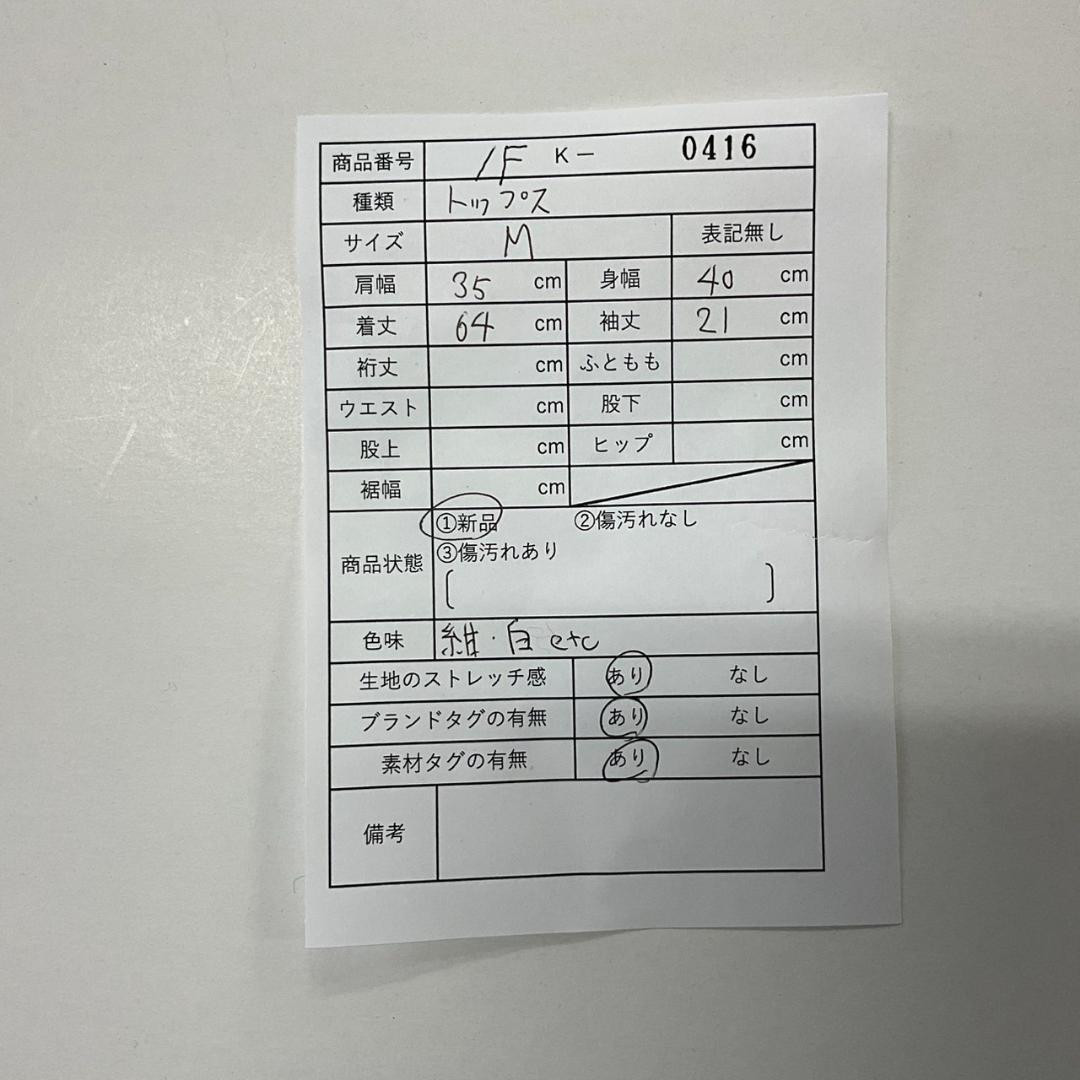 商品番号 1F K- 0416
種類 トップス
サイズ M 表記無し
肩幅 35 cm 身幅 40 cm
着丈 64 cm 袖丈 21 cm
裄丈 cm ふともも cm
ウエスト cm 股下 cm
股上 cm ヒップ cm
裾幅 cm
①新品 ②傷汚れなし
③傷汚れあり
商品状態
[ ]
色味 紺・白 etc
生地のストレッチ感 あり なし
ブランドタグの有無 あり なし
素材タグの有無 あり なし
備考